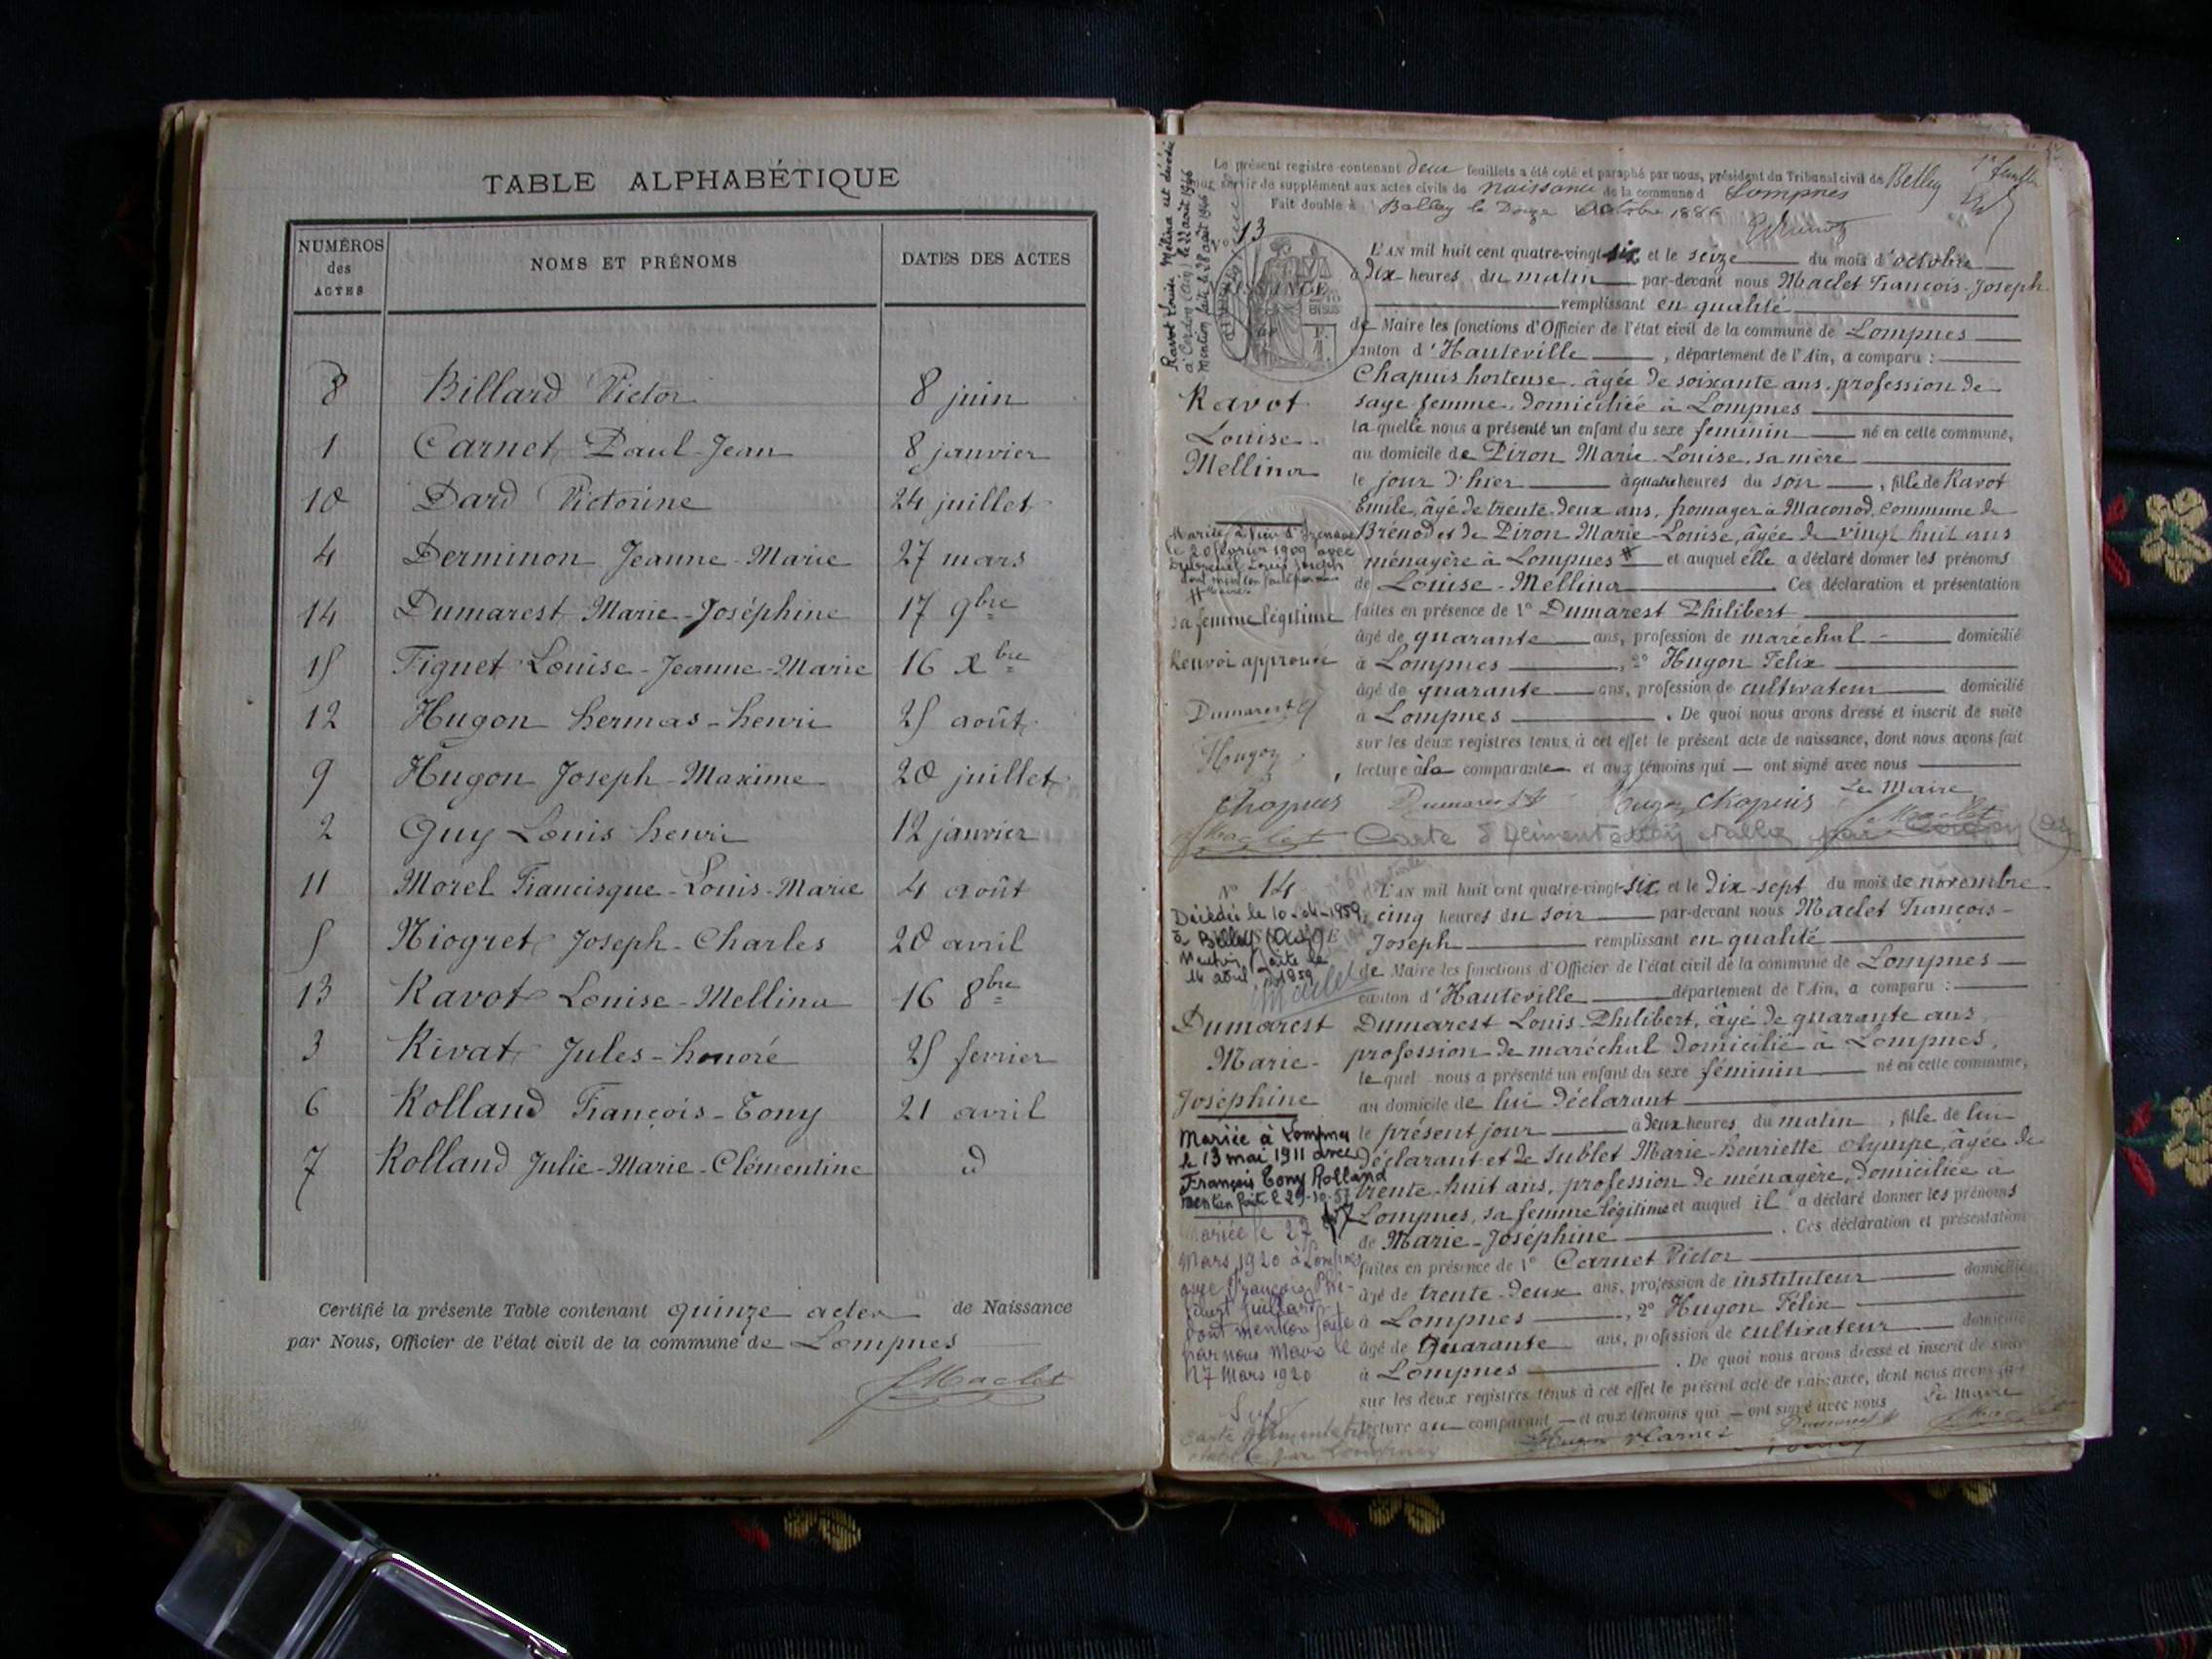 TABLE ALPHABÉTIQUE
NUMÉROS des ACTES
NOMS ET PRÉNOMS
DATES DES ACTES
8 Billard Victor 8 juin
1 Carnet Paul-Jean 8 janvier
10 Dard Victorine 24 juillet
4 Derminon Jeanne-Marie 27 mars
14 Dumarest Marie-Joséphine 17 9bre
15 Figuet Louise-Jeanne-Marie 16 xbre
12 Hugon hermas-henri 25 août
9 Hugon Joseph-Maxime 20 juillet
2 Guy Louis henri 12 janvier
11 Morel Francisque-Louis-Marie 4 août
5 Niogret Joseph-Charles 20 avril
13 Ravot Louise-Mellina 16 8bre
3 Rivat Jules-honoré 25 fevrier
6 Rolland François-Tony 21 avril
7 Rolland Julie-Marie-Clémentine d
Certifié la présente Table contenant quinze actes de Naissance
par Nous, Officier de l'état civil de la commune de Lompnes
Maclet
Le présent registre contenant deux feuillets a été coté et paraphé par nous, président du Tribunal civil de Belley
pour servir de supplément aux actes civils de naissance de la commune de Lompnes
Fait double à Belley le Douze Octobre 1886
1er feuillet
Ravot Louise Mélina est décédée
à Cordon (Ain) le 22 août 1946
Mention faite le 28 août 1946
No 13
NAISSANCE
L'AN mil huit cent quatre-vingt-six et le seize du mois d'octobre
à Dix heures du matin par-devant nous Maclet François-Joseph
remplissant en qualité
de Maire les fonctions d'Officier de l'état civil de la commune de Lompnes
canton d'Hauteville, département de l'Ain, a comparu :
Chapuis hortense, âgée de soixante ans, profession de
sage-femme, domiciliée à Lompnes
laquelle nous a présenté un enfant du sexe feminin né en cette commune,
au domicile de Piron Marie-Louise, sa mère
le jour d'hier à quatre heures du soir, fille de Ravot
Emile, âgé de trente-deux ans, fromager à Maconod, commune de
Brénod et de Piron Marie-Louise, âgée de vingt huit ans
ménagère à Lompnes # et auquel elle a déclaré donner les prénoms
de Louise-Mellina Ces déclaration et présentation
faites en présence de 1° Dumarest Philibert
âgé de quarante ans, profession de maréchal domicilié
à Lompnes, 2° Hugon Félix
âgé de quarante ans, profession de cultivateur domicilié
à Lompnes. De quoi nous avons dressé et inscrit de suite
sur les deux registres tenus à cet effet le présent acte de naissance, dont nous avons fait
lecture à la comparante et aux témoins qui ont signé avec nous
Le Maire
Ravot
Louise
Mellina
le 20 février 1909 avec
# sa femme légitime
Renvoi approuvé
Dumarest
Hugon
Chapuis Dumarest Hugon Chapuis Maclet
Maclet Carte d'Alimentation établie par
No 14
L'AN mil huit cent quatre-vingt-six et le Dix-sept du mois de novembre
à cinq heures du soir par-devant nous Maclet François-
Joseph remplissant en qualité
de Maire les fonctions d'Officier de l'état civil de la commune de Lompnes
canton d'Hauteville département de l'Ain, a comparu :
Dumarest Louis-Philibert, âgé de quarante ans
profession de maréchal domicilié à Lompnes,
lequel nous a présenté un enfant du sexe féminin né en cette commune,
au domicile de lui Déclarant
le présent jour à deux heures du matin, fille de lui
Déclarant et de Sublet Marie-henriette Olympe, âgée de
trente-huit ans, profession de ménagère, domiciliée à
Lompnes, sa femme légitime et auquel il a déclaré donner les prénoms
de Marie-Joséphine. Ces déclaration et présentation
faites en présence de 1° Carnet Victor
âgé de trente-deux ans, profession de instituteur domicilié
à Lompnes, 2° Hugon Félix
âgé de Quarante ans, profession de cultivateur domicilié
à Lompnes. De quoi nous avons dressé et inscrit de suite
sur les deux registres tenus à cet effet le présent acte de naissance, dont nous avons fait
lecture au comparant et aux témoins qui ont signé avec nous
Le Maire
Décédée le 10-04-1959
à Belley (Ain)
Mention faite le
14 avril 1959
Maclet
Dumarest
Marie-
Joséphine
Mariée à Lompnes
le 13 mai 1911 avec
François Tony Rolland
Mention faite le 29-10-57
Mariée le 27
Mars 1920 à Lompnes
avec François
dont mention faite
par nous Maire le
27 Mars 1920
Carte d'alimentation
établie par Lompnes
Hugon VCarnet Dumarest Maclet